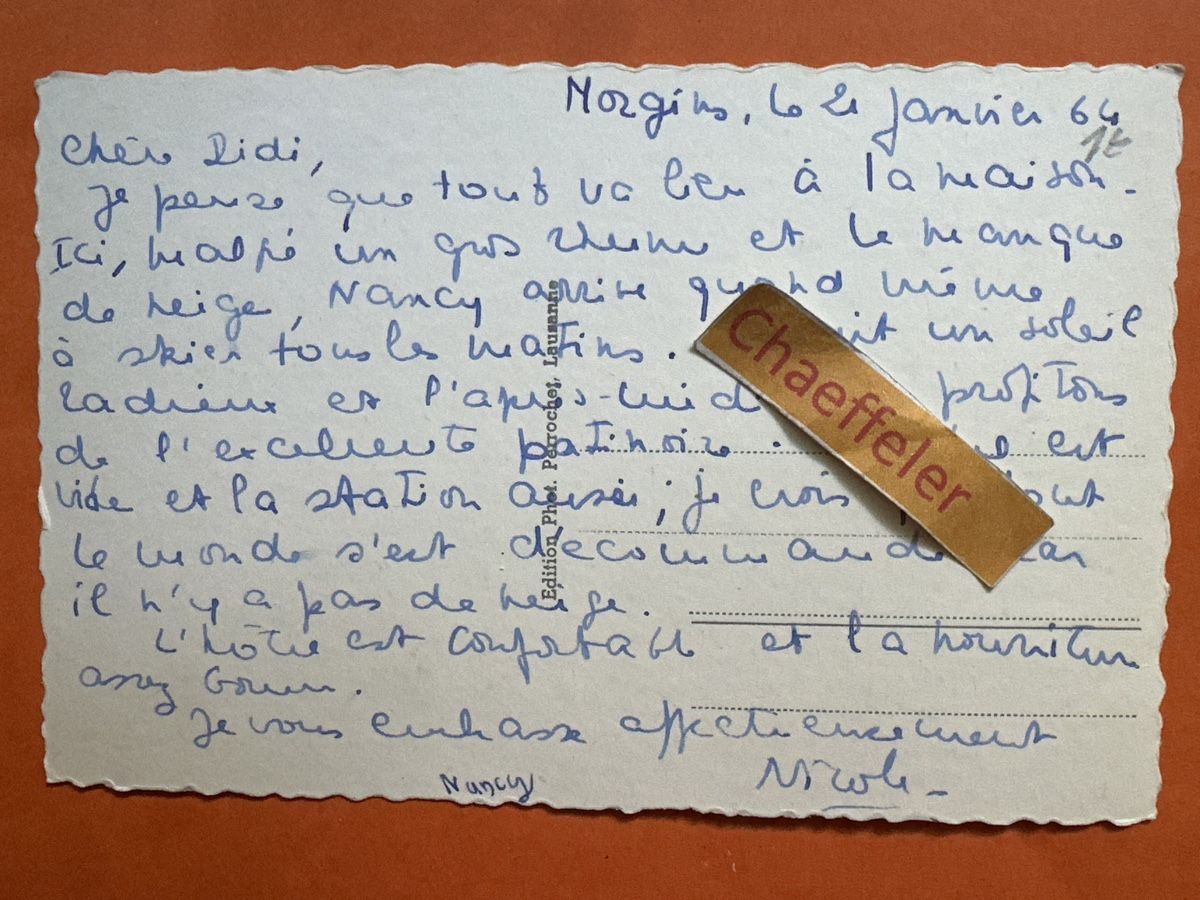 Morgins, le 2 janvier 64
1€
Chère Didi,
Je pense que tout va bien à la maison.
Ici, malgré un gros rhume et le manque
de neige, Nancy arrive quand même
à skier tous les matins. un soleil
radieux et l'après-mid profitons
de l'excellente patinoire. est
vide et la station aussi ; je crois
le monde s'est décommandé car
il n'y a pas de neige.
L'hôtel est confortable et la nourriture
assez bonne.
Je vous embrasse affectueusement
Nicole
Nancy
Edition Phot. Perrochet, Lausanne
Chaeffeler